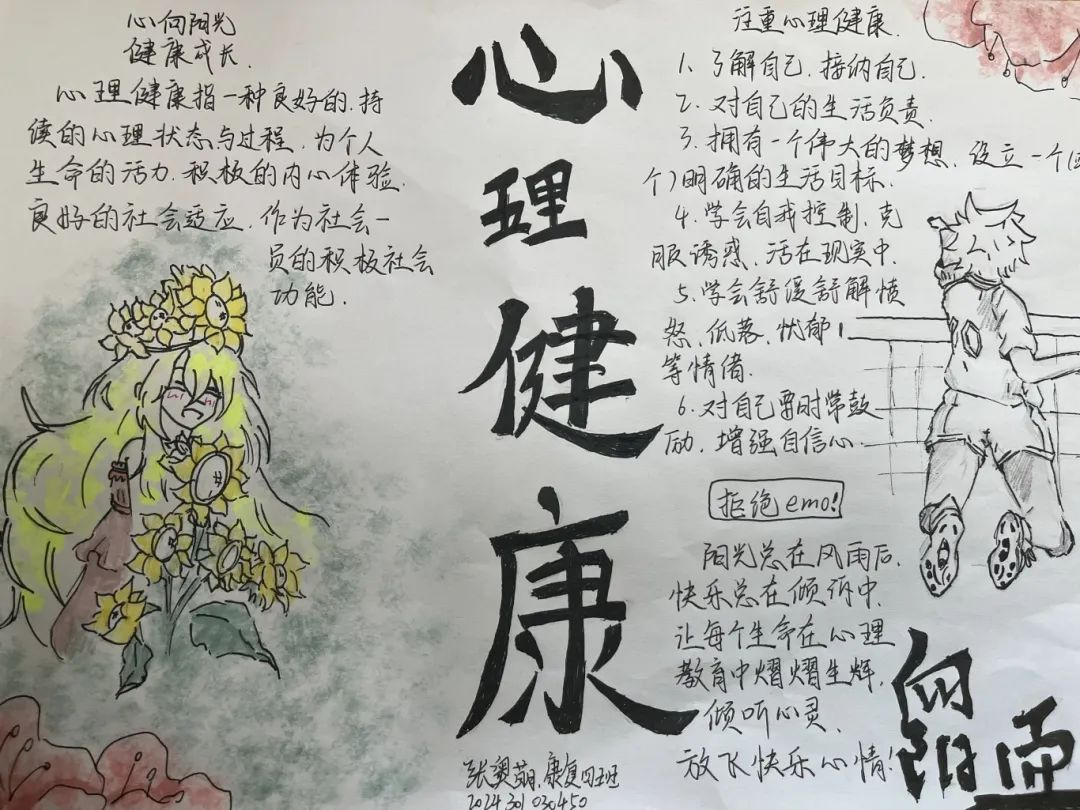 心向阳光
健康成长.
心理健康指一种良好的.持
续的心理状态与过程.为个人
生命的活力.积极的内心体验.
良好的社会适应.作为社会一
员的积极社会
功能.
心
理
健
康
注重心理健康.
1、了解自己.接纳自己.
2.对自己的生活负责.
3.拥有一个伟大的梦想.设立一个(
个)明确的生活目标.
4.学会自我控制.克
服诱惑.活在现实中
5.学会舒缓舒解愤
怒.低落.忧郁
等情绪.
6.对自己要时常鼓
励.增强自信心.
拒绝emo!
阳光总在风雨后.
快乐总在倾诉中.
让每个生命在心理
教育中熠熠生辉.
倾听心灵.
放飞快乐心情!
向
阳 而
张 萌.康复四班
2024301030450